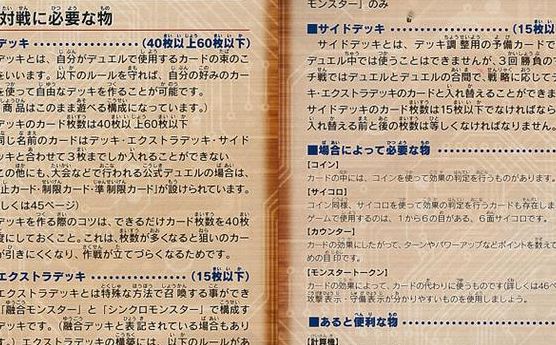 対戦に必要な物
デッキ (40枚以上60枚以下)
デッキとは、自分がデュエルで使用するカードの束のこ
をいいます。以下のルールを守れば、自分の好みのカー
を使って自由なデッキを作ることが可能です。
商品はこのまま遊べる構成になっています。)
デッキのカード枚数は40枚以上60枚以下
同じ名前のカードはデッキ・エクストラデッキ・サイド
ッキと合わせて3枚までしか入れることができない
この他にも、大会などで行われる公式デュエルの場合は、
止カード・制限カード・準制限カード」が設けられています。
しくは45ページ)
デッキを作る際のコツは、できるだけカード枚数を40枚
度にしておくこと。これは、枚数が多くなると狙いのカー
が引きにくくなり、作戦が立てづらくなるためです。
エクストラデッキ (15枚以下)
エクストラデッキとは特殊な方法で召喚する事ができ
「融合モンスター」と「シンクロモンスター」で構成す
デッキです。(融合デッキと表記されている場合もあり
す。) エクストラデッキの構築には、以下のルールがあ
モンスター」のみ
■サイドデッキ (15枚以
サイドデッキとは、デッキ調整用の予備カードで
デュエル中では使うことはできませんが、3回勝負の
チ戦ではデュエルとデュエルの合間で、戦略に応じて
キ・エクストラデッキのカードと入れ替えることができま
サイドデッキのカード枚数は15枚以下でなければなら
入れ替える前と後の枚数は等しくなければなりません。
■場合によって必要な物
【コイン】
カードの中には、コインを使って効果の判定を行うものがあります。
【サイコロ】
コイン同様、サイコロを使って効果の判定を行うカードも存在しま
ゲームで使用するのは、1から6の目がある、6面サイコロです。
【カウンター】
カードの効果にしたがって、ターンやパワーアップなどポイントを数えて
めの目印です。
【モンスタートークン】
カードの効果によって、カードの代わりに使うものです(詳しくは46ペ
攻撃表示・守備表示が分かりやすいものを使用しましょう。
■あると便利な物
【計算機】